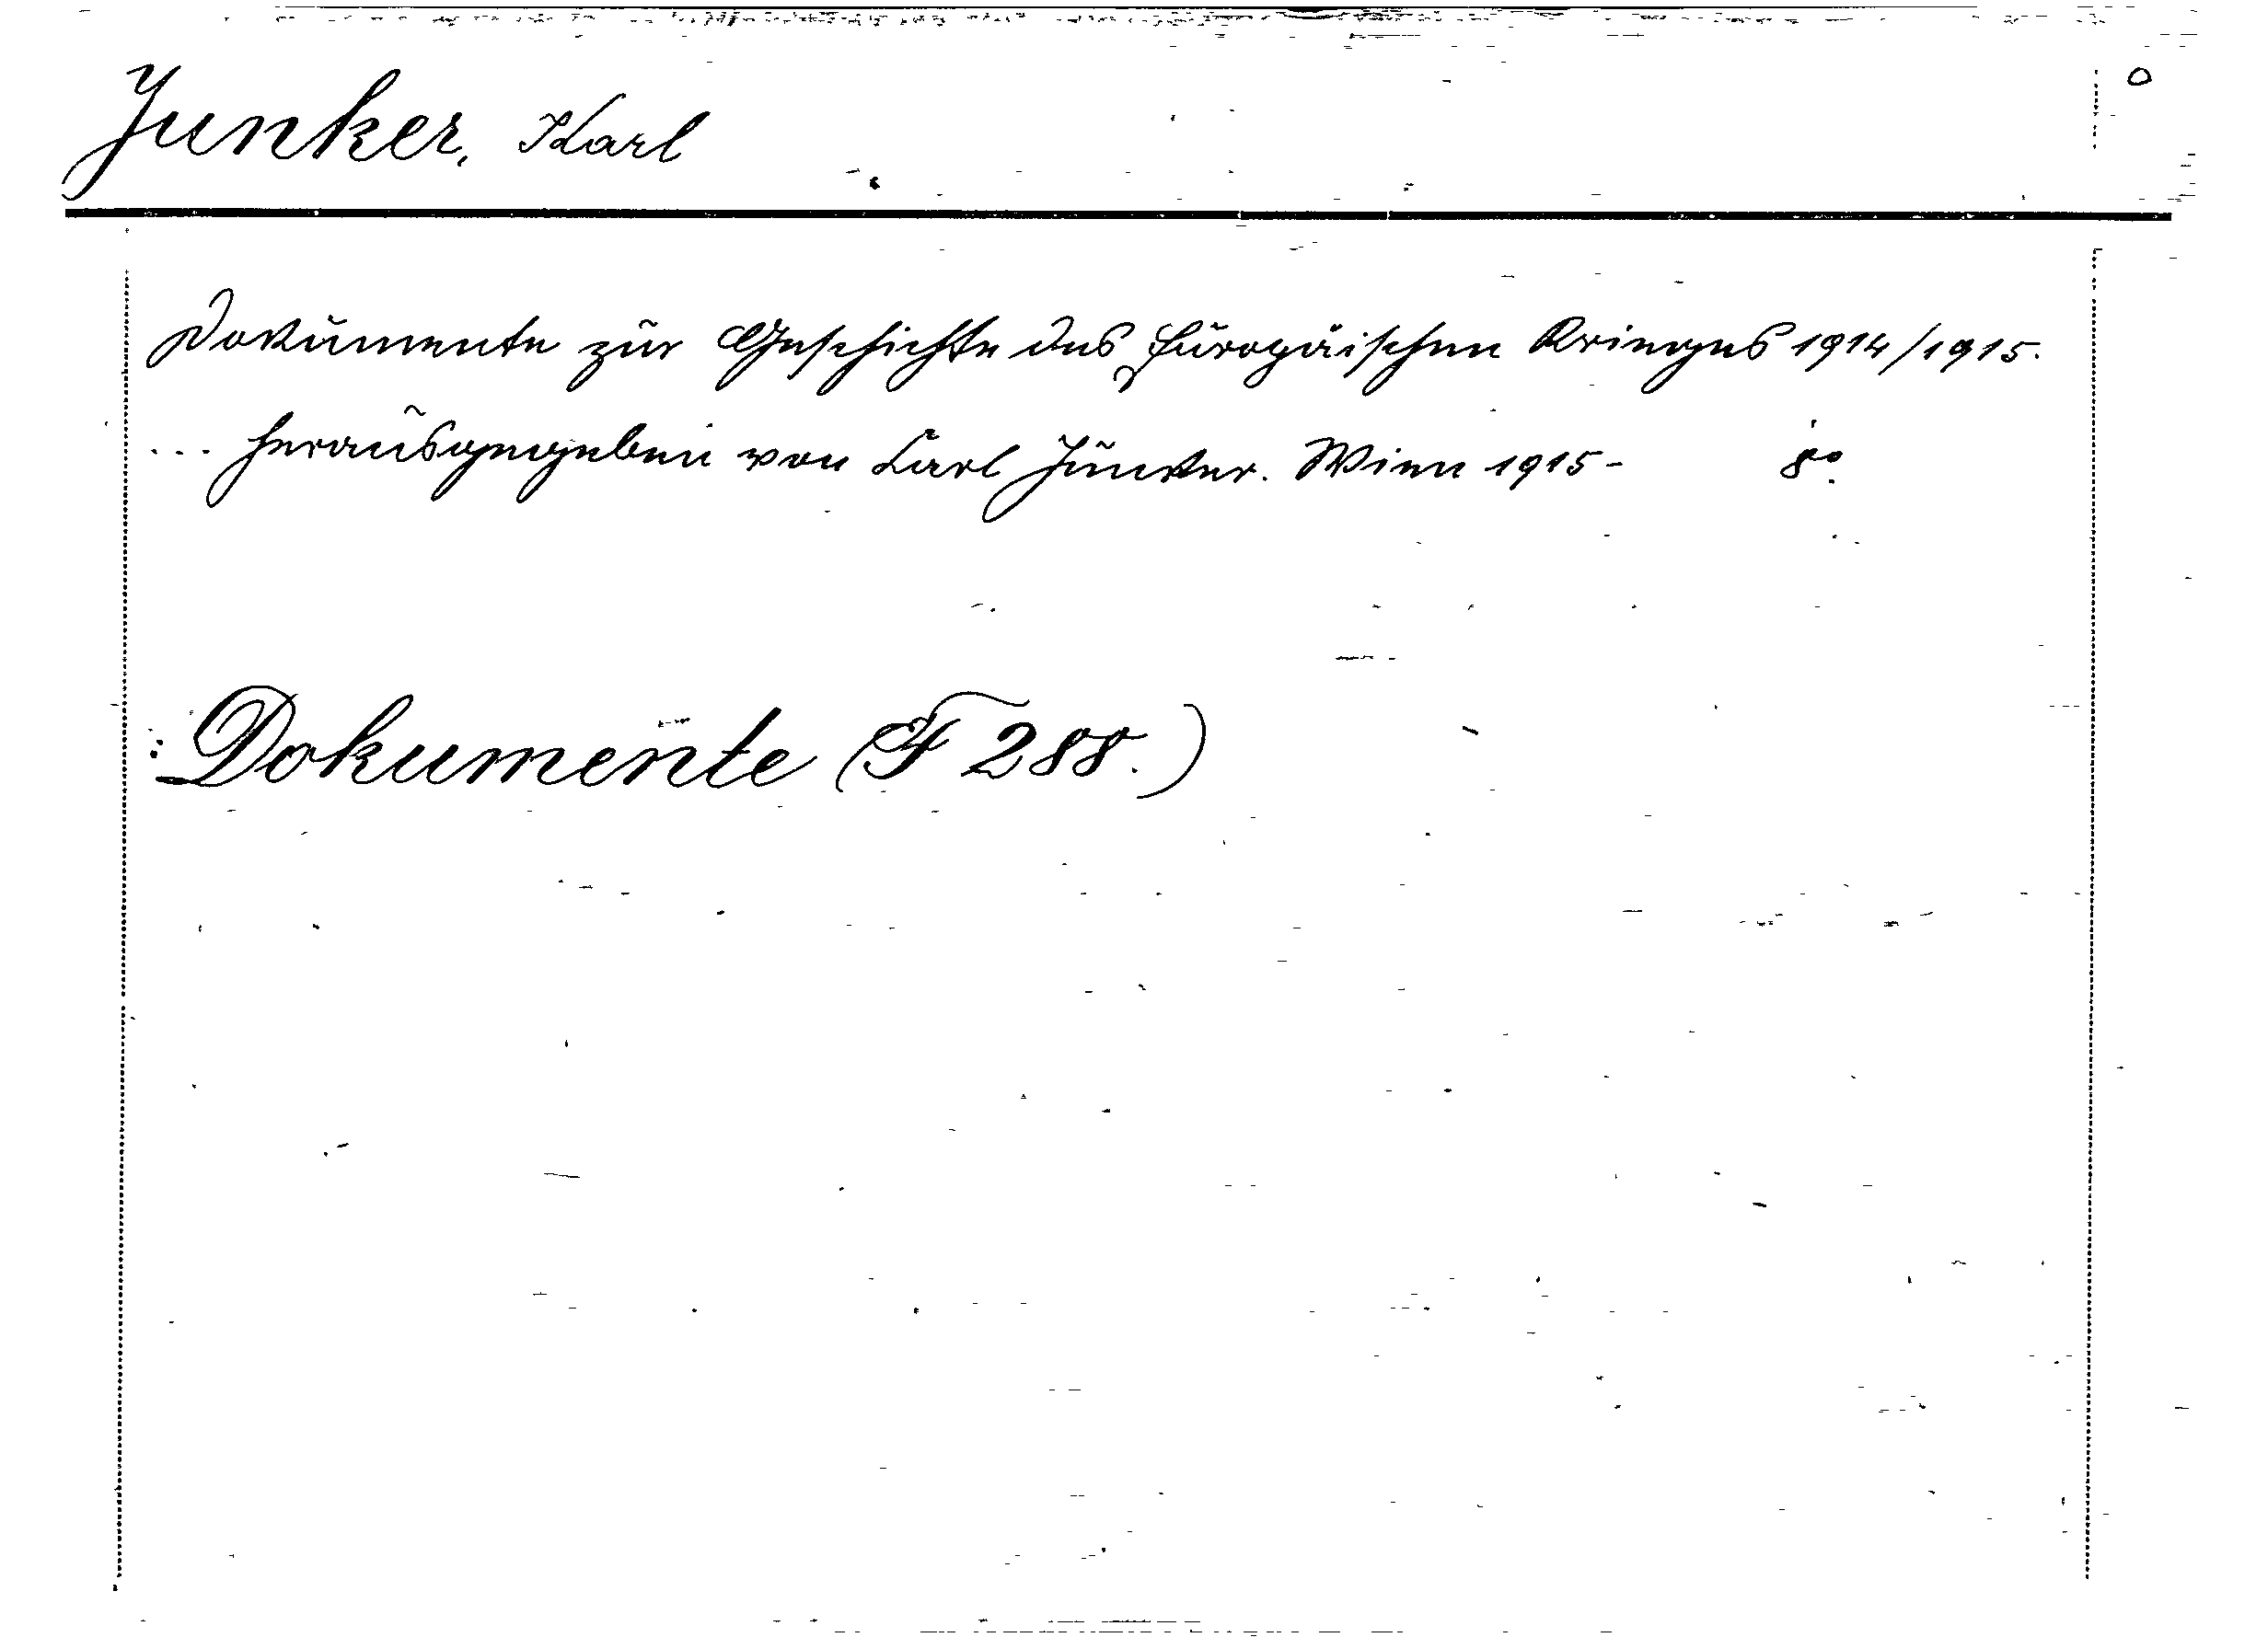 Junker, Karl
Dokumente zur Geschichte des Europäischen Krieges 1914/1915.
... herausgegeben von Carl Junker. Wien 1915- 8°.
: Dokumente (F 288.)